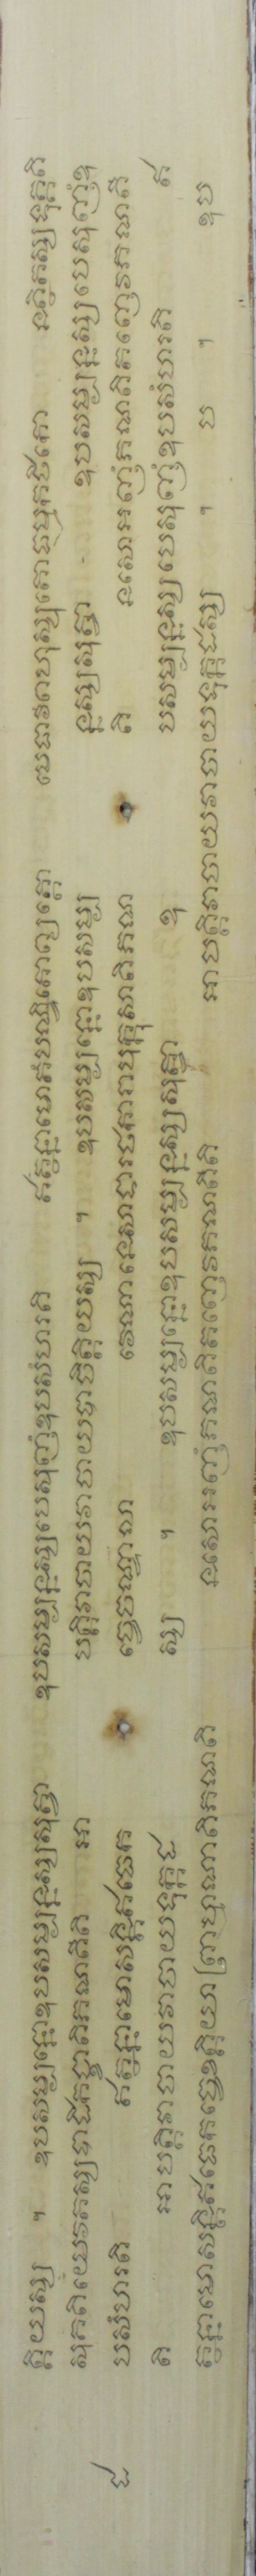 ត្តិយស្ស ។ ឧបសម្បន្នោឧបសម្បន្នស្សសុត្វា ឧបសម្បន្នស្សបេសុញ្ញំឧបសំហរតិ ឥត្ថន្នាមោតំបណ្ឌិតោព្យត្តោ មេធាវីពហុស្សុតោធម្មកថិកោ នត្ថិតស្សទុគ្គតិ
សុគតិយេវតស្សបាដិកង្ខាតិភណតីតិ អា បត្តិវាចាយវាចាយបាចិត្តិយស្ស ។ ឧបសម្បន្នោឧបសម្ប ន្នស្សសុត្វា ឧបសម្បន្នស្សបេសុញ្ញំឧ
បសំហរតិ ឥត្ថន្នាមោសន្តិឥធេក ច្ចេចណ្ឌាលា វេណានេសាទារថការាបុក្កុសាតិភណ តិ នសោអញ្ញំភណតិតញ្ញេវភណតី
តិ អាបត្តិវាចាយវាចាយទុក្កដ ស្ស ។ ឧបសម្បន្នោឧបសម្បន្នស្សសុត្វា ឧ បសម្បន្នស្សបេសុញ្ញំឧបសំហរតិ ឥ
ត្ថន្នាមោសន្តិឥធេកច្ចេខត្តិយាព្រាហ្មណាតិភណតិ នសោអញ្ញំភណតិតញ្ញេវភណតីតិ អាបត្តិវាចាយវាចាយទុក្កដស្ស ។ ប ។ ឧប